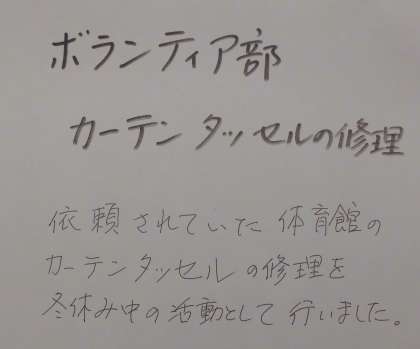 ボランティア部
カーテンタッセルの修理
依頼されていた体育館の
カーテンタッセルの修理を
冬休み中の活動として行いました。